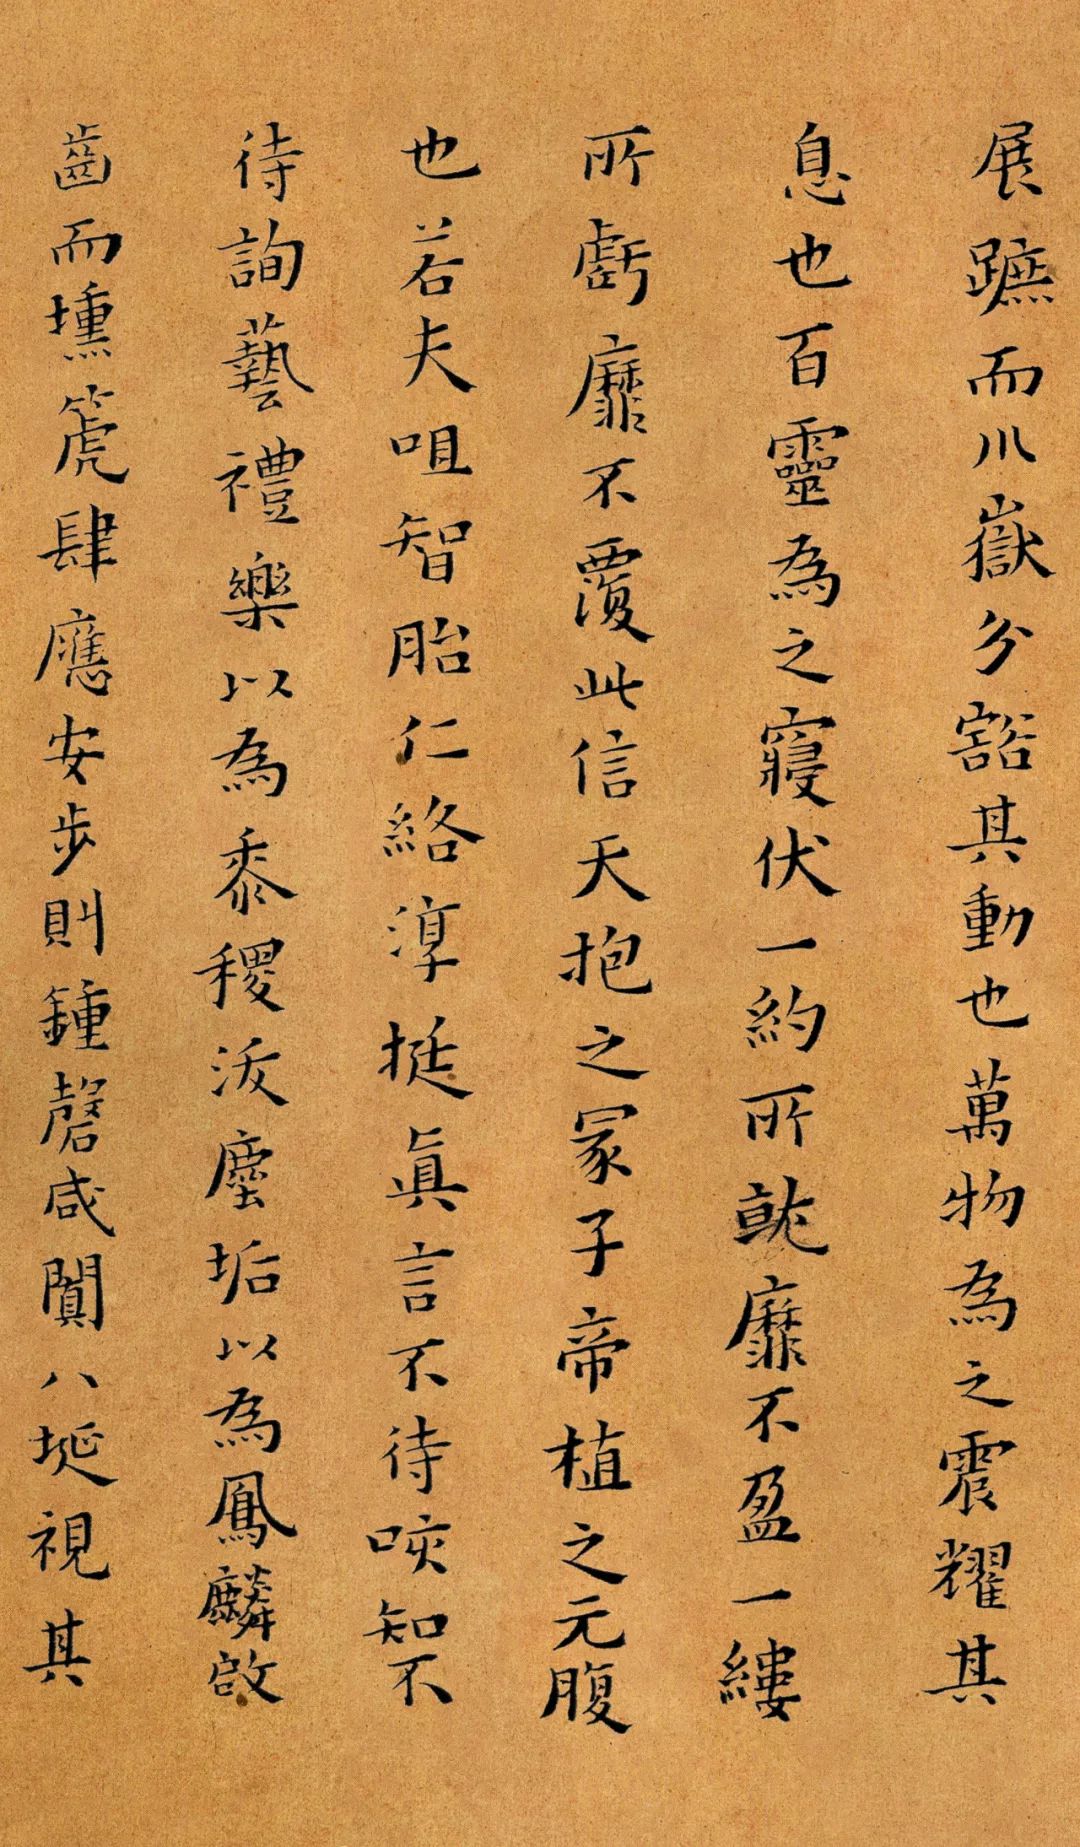 展蹠而川嶽分豁其動也萬物為之震耀其
息也百靈為之寢伏一約所就靡不盈一縷
所虧靡不覆此信天抱之冢子帝植之元腹
也若夫咀智胎仁絡淳挺真言不待咳知不
待詢藝禮樂以為黍稷泼塵垢以為鳳麟啟
齒而壎箎肆應安步則鍾磬咸闐八埏視其